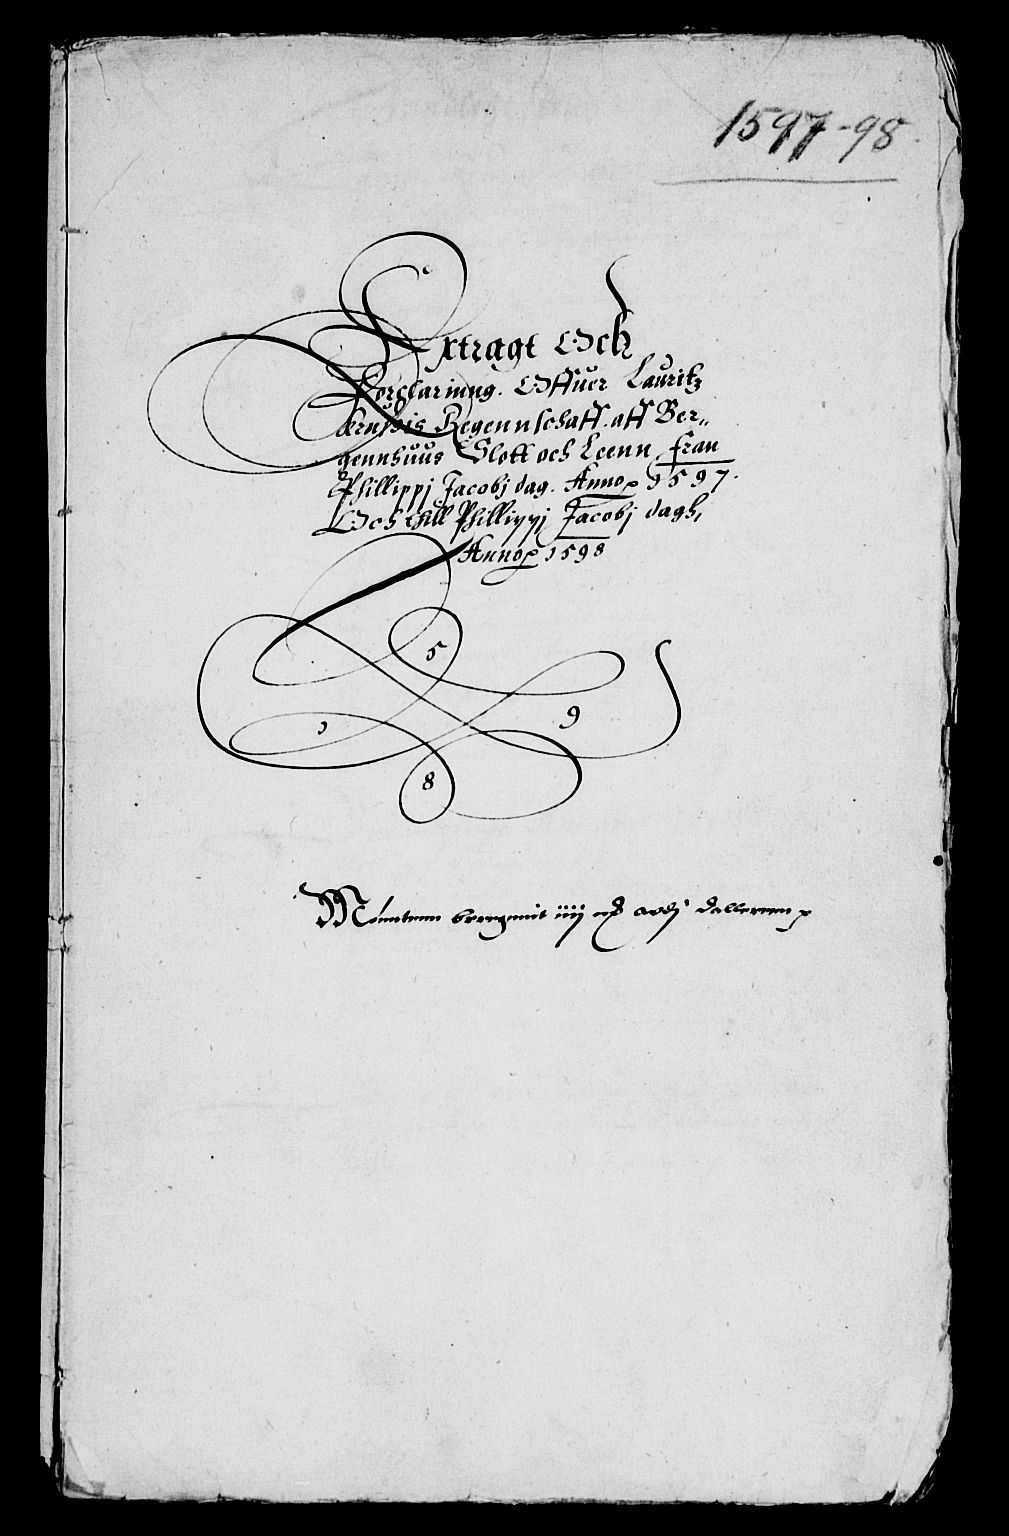 1597-98.
Extragt Och
Forclaring. Offuer Lauritz
Regennschaff. aff Ber„
gennhuus Slott och Leenn fran
Phillippj Jacobj dag. Anno 1597.
Och thill Phillippj Jacobj dagh,
Anno 1598
5
1 9
8
iiij dallerenn